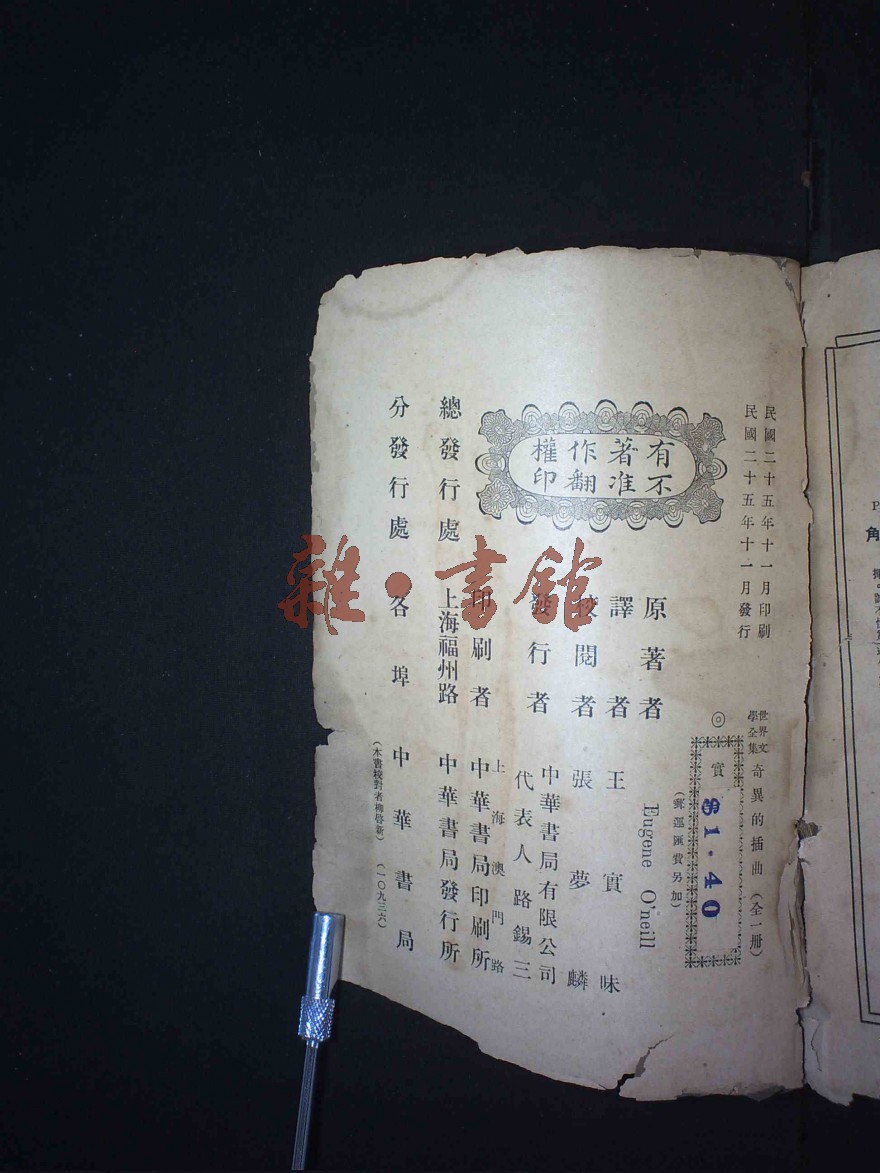 民國二十五年十一月印刷
民國二十五年十一月發行
世界文學全集 奇異的插曲(全一册)
◎
實 $1.40
(郵運匯費另加)
有著作權
不准翻印
原著者 Eugene O'neill
譯者 王實味
校閱者 張夢麟
發行者 中華書局有限公司
代表人路錫三
印刷者 上海澳門路
中華書局印刷所
總發行處 上海福州路 中華書局發行所
分發行處 各埠 中華書局
(本書校對者柳啓新)(一〇九三六)
雜·書館
角